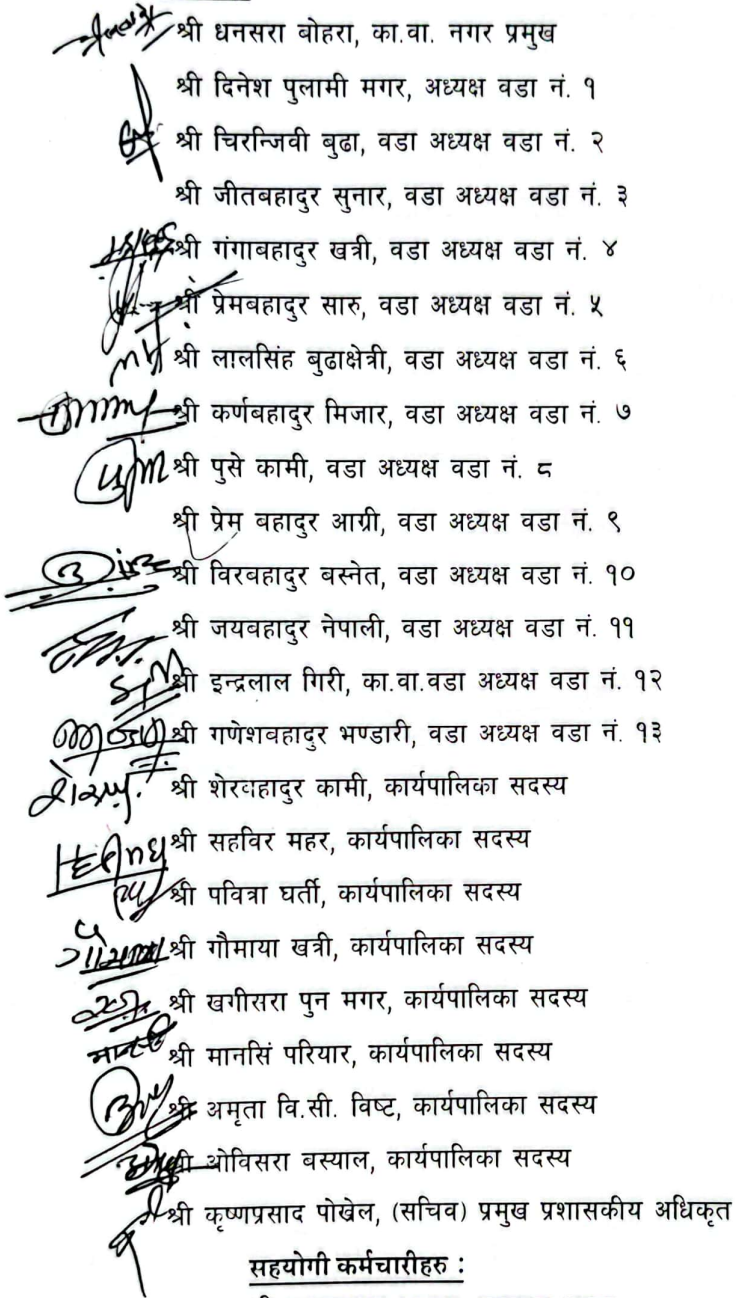 श्री धनसरा बोहरा, का.वा. नगर प्रमुख
श्री दिनेश पुलामी मगर, अध्यक्ष वडा नं. १
श्री चिरन्जिवी बुढा, वडा अध्यक्ष वडा नं. २
श्री जीतबहादुर सुनार, वडा अध्यक्ष वडा नं. ३
श्री गंगाबहादुर खत्री, वडा अध्यक्ष वडा नं. ४
श्री प्रेमबहादुर सारु, वडा अध्यक्ष वडा नं. ५
श्री लालसिंह बुढाक्षेत्री, वडा अध्यक्ष वडा नं. ६
श्री कर्णबहादुर मिजार, वडा अध्यक्ष वडा नं. ७
श्री पुसे कामी, वडा अध्यक्ष वडा नं. ८
श्री प्रेम बहादुर आग्री, वडा अध्यक्ष वडा नं. ९
श्री विरबहादुर बस्नेत, वडा अध्यक्ष वडा नं. १०
श्री जयबहादुर नेपाली, वडा अध्यक्ष वडा नं. ११
श्री इन्द्रलाल गिरी, का.वा.वडा अध्यक्ष वडा नं. १२
श्री गणेशवहादुर भण्डारी, वडा अध्यक्ष वडा नं. १३
श्री शेरवहादुर कामी, कार्यपालिका सदस्य
श्री सहविर महर, कार्यपालिका सदस्य
श्री पवित्रा घर्ती, कार्यपालिका सदस्य
श्री गौमाया खत्री, कार्यपालिका सदस्य
श्री खगीसरा पुन मगर, कार्यपालिका सदस्य
मानसिं श्री मानसिं परियार, कार्यपालिका सदस्य
श्री अमृता वि.सी. विष्ट, कार्यपालिका सदस्य
श्री ओविसरा बस्याल, कार्यपालिका सदस्य
श्री कृष्णप्रसाद पोखेल, (सचिव) प्रमुख प्रशासकीय अधिकृत
सहयोगी कर्मचारीहरु :